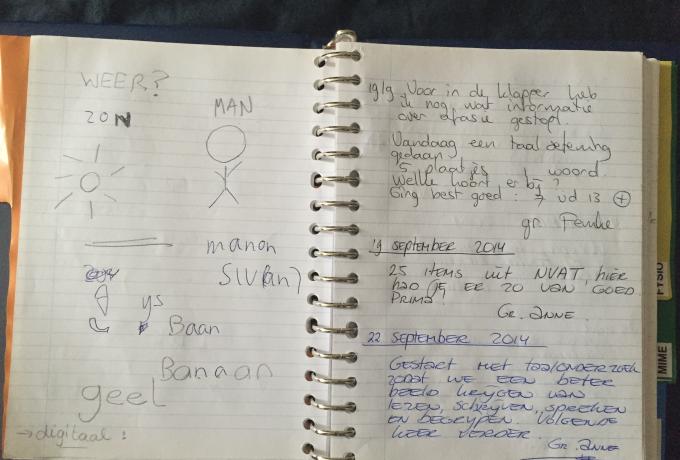 WEER?
ZON
MAN
manon
SIVAN
ys
Baan
Banaan
geel
→ digitaal :
19/9 Voor in de klapper heb
ik nog wat informatie
over afasie gestopt.
Vandaag een taal oefening
gedaan.
5 plaatjes 1 woord.
Welke hoort er bij?
Ging best goed : 7 vd 13 +
gr. Femke
19 SEPTEMBER 2014
25 ITEMS UIT NVAT, HIER
HAD JE ER 20 VAN GOED
PRIMA!
Gr. ANNE.
22 SEPTEMBER 2014
GESTART MET TAALONDERZOEK
ZODAT WE EEN BETER
BEELD KRIJGEN VAN
LEZEN, SCHRIJVEN, SPREKEN
EN BEGRIJPEN. VOLGENDE
KEER VERDER.
Gr. ANNE
FYSIO
MIME